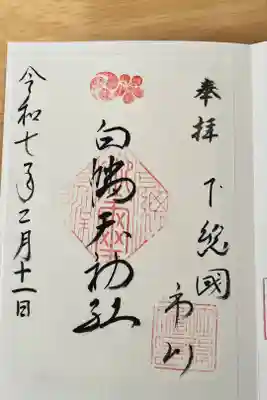 奉拝
下総國
市川
白幡天神社
令和七年二月十一日